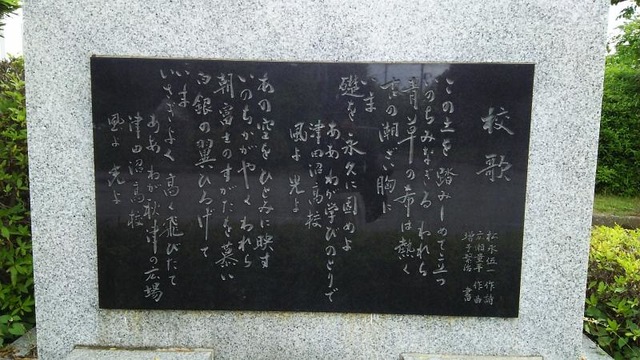 校歌
松永伍一 作詩
広瀬量平 作曲
増子榮浩 書
この土を踏みしめて立つ
いのちみなぎる われら
青草の希は熱く
ま
東の潮ざい胸に
礎を 永久に固めよ
ああ わが学びのとりで
津田沼高校
風よ 光よ
あの空をひとみに映す
いのちかがやくわれら
朝富士のすがたを慕い
白銀の翼ひろげて
いま
いさぎよく 高く飛びたて
ああ わが秋津の広場
津田沼高校
風よ 光よ